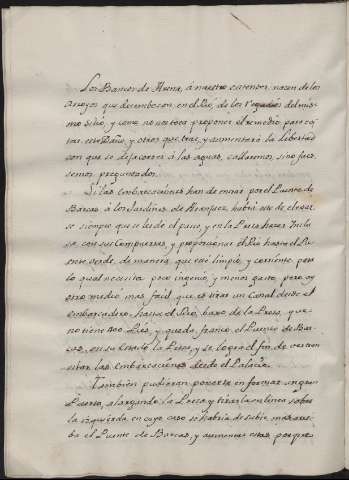 Los Bancos de Arena, á nuestro entender, nacen de los
Arroyos que desembocan, en el Rio, de los regadios del mis-
mo sitio, y como no nos toca proponer el remedio para cor-
tar este Daño, y otros que trae, y aumentará la libertad
con que se dejan correr á las aguas, callaremos, sino fuese-
mos preguntados.
Si las embarcaciones han de entrar por el Puente de
Barcas, á los Jardines de Aranjuez, habrá este de elevar-
se siempre que se les dé el paso, y en la Presa hacer
sa con sus Compuertas, y proporcionar el Rio hasta el Pu-
ente verde, de manera, que esté limpio, y corriente, para
lo qual necesita poco ingenio, y menos gasto, pero ay
otro medio mas facil, que es tirar un Canal desde el
embarcadero, hasta el Rio, baxo de la Presa, que
no tiene 400 Pies, y queda franco el Puente de Bar-
cas, en su estado la Presa, y se logra el fin de ver en
las embarcaciones desde el Palacio.
Tambien pudieran ponerse en formar un gran
Puerto, alargando la Presa, y tirarla en linea sobre
la izquierda, en cuyo caso se habria de subir mas arri-
ba el Puente de Barcas, y aumentar estas, porque